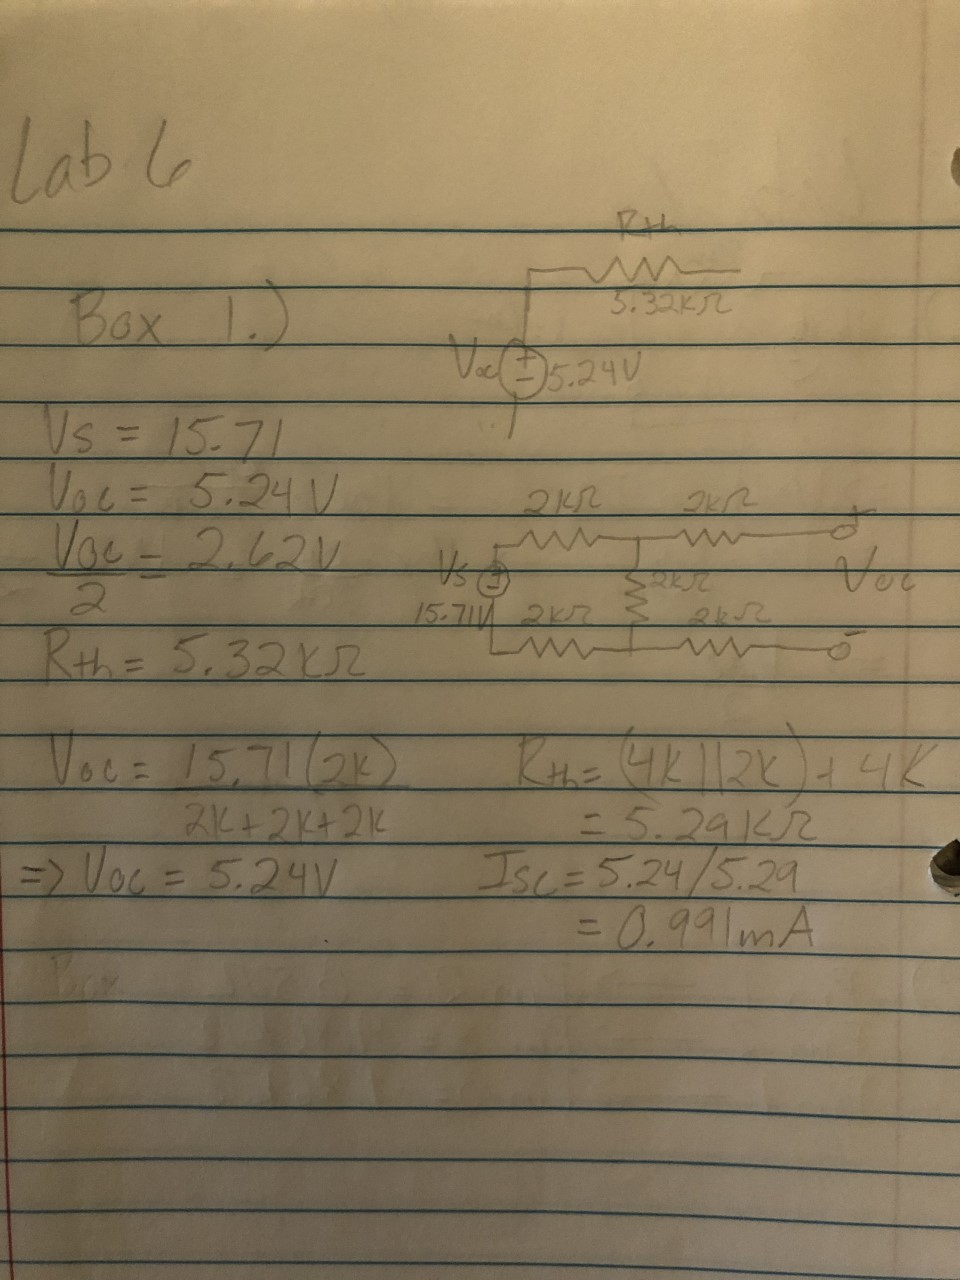 Lab 6
Rth
5.32kΩ
Box 1.)
Voc 5.24V
Vs = 15.71
Voc = 5.24V
Voc/2 = 2.62V
Rth = 5.32kΩ
2kΩ 2kΩ +
Vs 2kΩ Voc
15.71V 2kΩ 2kΩ -
Voc = 15.71(2k)
2k+2k+2k
=> Voc = 5.24V
Rth = (4k||2k)+4k
= 5.29kΩ
Isc = 5.24/5.29
= 0.991mA
Box